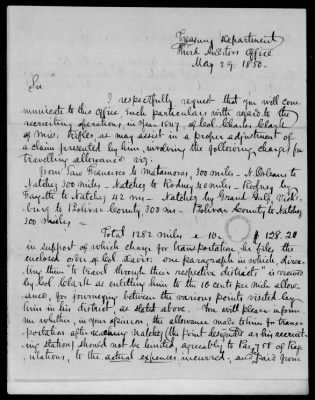 Treasury Department
Third Auditors Office
May 29. 1850.
Sir
I respectfully request that you will com-
municate to this Office such particulars with regard to the
recruiting operations, in Jan 1847, of Col. Charles Clark
of Miss. Rifles, as may assist in a proper adjustment of
a claim presented by him, involving the following charges for
travelling allowance viz:
From San Francisco to Matamoros, 300 miles - N. Orleans to
Natchez 300 miles - Natchez to Rodney 40 miles - Rodney by
Fayette to Natchez 42 ms - Natchez by Grand Gulf, Vicks-
burg to Bolivar County 300 ms - Bolivar County to Natchez
300 miles
Total 1282 miles @ 10 $128.20
in support of which charge for transportation, he files the
enclosed order of Col. Davis: one paragraph in which, direc-
ting them "to travel through their respective districts" is viewed
by Col. Clark as entitling him to the 10 cents per mile allow-
ance, for journeying between the various points visited by
him in his district, as stated above. You will please inform
me whether, in your opinion, the allowance made to him for trans-
portation after reaching Natchez (the point designated as his recruit-
ing station) should not be limited, agreeably to Par, 758 of Reg-
ulations, to the actual expenses incurred, and paid from